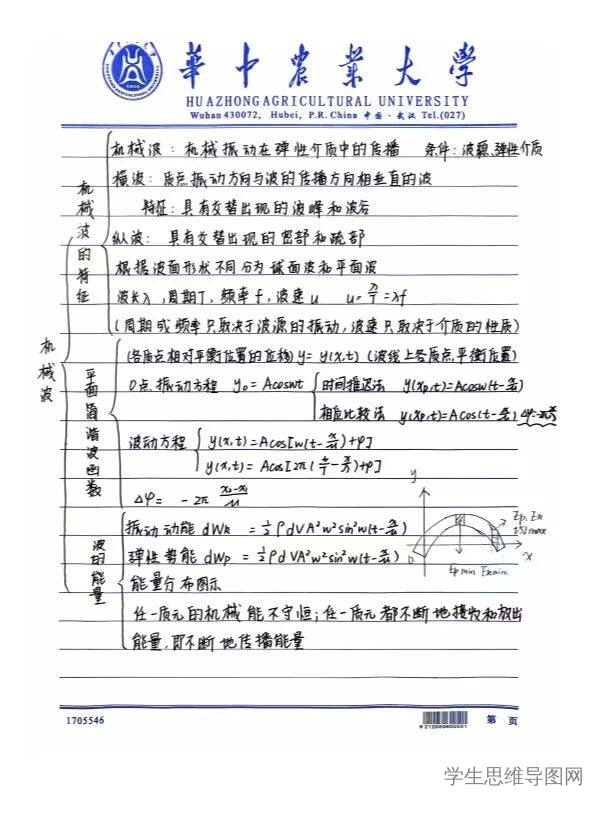 華中農業大学
HUAZHONG AGRICULTURAL UNIVERSITY
Wuhan 430072, Hubei, P.R. China 中国·武汉 Tel.(027)
机械波
机械波的特征
机械波：机械振动在弹性介质中的传播 条件：波源、弹性介质
横波：质点振动方向与波的传播方向相垂直的波
特征：具有交替出现的波峰和波谷
纵波：具有交替出现的密部和疏部
根据波面形状不同分为球面波和平面波
波长λ，周期T，频率f，波速u u=λ/T=λf
(周期或频率只取决于波源的振动，波速只取决于介质的性质)
平面简谐波函数
(各质点相对平衡位置的位移) y= y(x,t) (波线上各质点平衡位置)
O点振动方程 y₀=Acosωt
时间推迟法 y(xp,t)=Acosω(t-x/u)
相位比较法 y(xp,t)=Acos(t-x/u)
波动方程
y(x,t)=Acos[ω(t-x/u)+φ]
y(x,t)=Acos[2π(t/T-x/λ)+φ]
Δφ= -2π
波的能量
振动动能 dWk =½ρdVA²ω²sin²ω(t-x/u)
弹性势能 dWp =½ρdVA²ω²sin²ω(t-x/u)
能量分布图示
y
Ep. Ek
均max
x
o
Ep min Ek min
任一质元的机械能不守恒；任一质元都不断地接收和放出
能量，即不断地传播能量
1705546
第 页
学生思维导图网